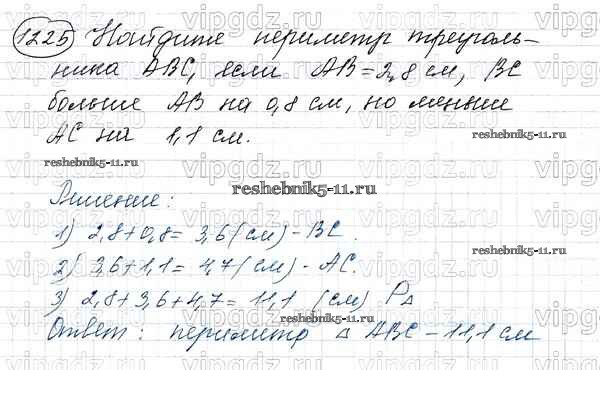 1225 Найдите периметр треуголь-
ника ABC, если AB=2,8 см, BC
больше AB на 0,8 см, но меньше
AC на 1,1 см.
reshebnik5-11.ru
reshebnik5-11.ru
reshebnik5-11.ru
Решение:
1) 2,8+0,8= 3,6 (см) - BC.
reshebnik5-11.ru
2) 3,6+1,1= 4,7 (см) - AC.
3) 2,8+3,6+4,7= 11,1 (см) P△
reshebnik5-11.ru
Ответ: периметр △ ABC - 11,1 см
vipgdz.ru